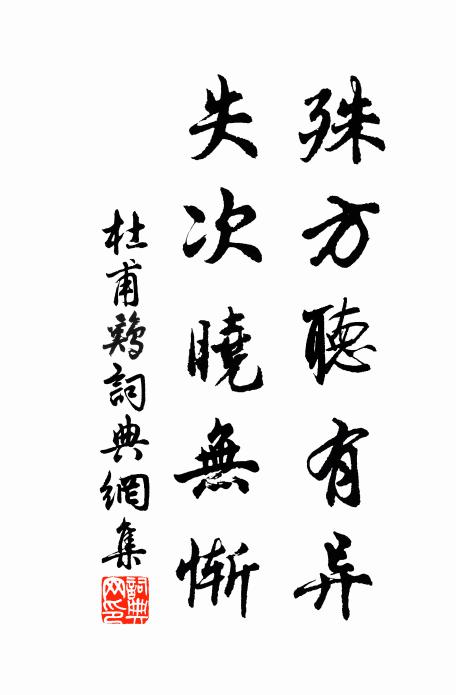 殊方聽有异
失次曉無慚
杜甫鷄詞典網集
詞典网印